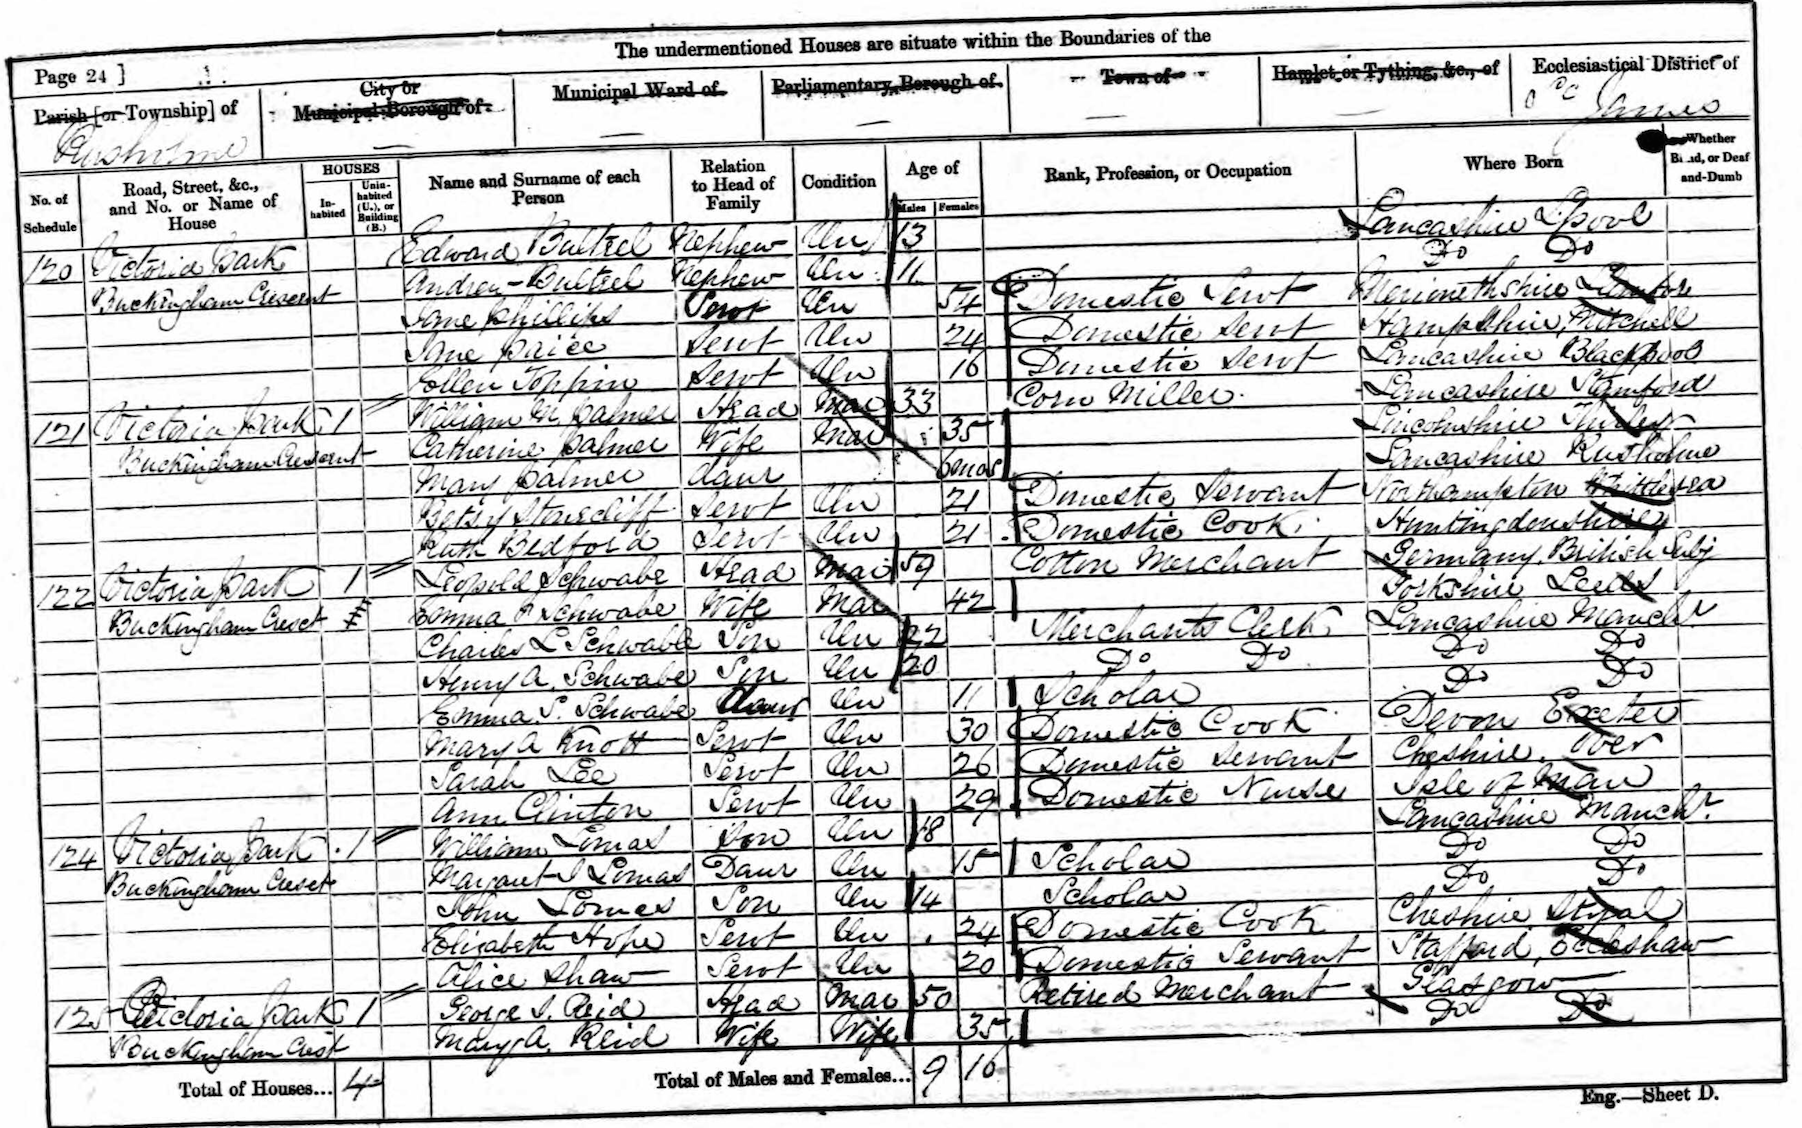 The undermentioned Houses are situate within the Boundaries of the
Page 24 ]
Parish [or Township] of
Rusholme
City or
Municipal Borough of
Municipal Ward of
Parliamentary Borough of
Town of
Hamlet or Tything, &c., of
Ecclesiastical District of
James
No. of Schedule
Road, Street, &c., and No. or Name of House
HOUSES
In-habited
Unin-habited (U.), or Building (B.)
Name and Surname of each Person
Relation to Head of Family
Condition
Age of
Males
Females
Rank, Profession, or Occupation
Where Born
Whether Blind, or Deaf-and-Dumb
120 Victoria Park Edward Bultzel Nephew Un 13 Lancashire L.pool
Buckingham Crescent Andrew Bultzel Nephew Un 11 Do Do
Jane Phillips Servt Un 54 Domestic Servt Merionethshire
Jane Paice Servt Un 24 Domestic Servt Hampshire, Mitchell
Ellen Toppin Servt Un 16 Domestic Servt Lancashire Blackpool
121 Victoria Park 1 William M Palmer Head Mar 33 Corn Miller Lancashire Stamford
Buckingham Crescent Catherine Palmer Wife Mar 35 Lincolnshire
Mary Palmer daur 6 mos Lancashire Rusholme
Betsy Stonecliff Servt Un 21 Domestic Servant Northampton Whittlesea
Ruth Bedford Servt Un 21 Domestic Cook Huntingdonshire
122 Victoria Park 1 Leopold Schwabe Head Mar 59 Cotton Merchant Germany, British Subj
Buckingham Cresct Emma P Schwabe Wife Mar 42 Yorkshire Leeds
Charles L Schwabe Son Un 22 Merchants Clerk Lancashire Manchr
Henry A. Schwabe Son Un 20 Do Do Do Do
Emma S. Schwabe Daur Un 11 Scholar Do Do
Mary A Knott Servt Un 30 Domestic Cook Devon Exeter
Sarah Lee Servt Un 26 Domestic Servant Cheshire, Over
Ann Clinton Servt Un 29 Domestic Nurse Isle of Man
124 Victoria Park 1 William Lomas Son Un 18 Lancashire Manchr.
Buckingham Cresct Margaret I Lomas Daur Un 15 Scholar Do Do
John Lomas Son Un 14 Scholar Do Do
Elizabeth Hope Servt Un 24 Domestic Cook Cheshire Styal
Alice Shaw Servt Un 20 Domestic Servant Stafford, Eccleshaw
125 Victoria Park 1 George S. Reid Head Mar 50 Retired Merchant Glasgow
Buckingham Crest Mary A. Reid Wife Wife 35 Do Do
Total of Houses... 4
Total of Males and Females... 9 16
Eng.—Sheet D.